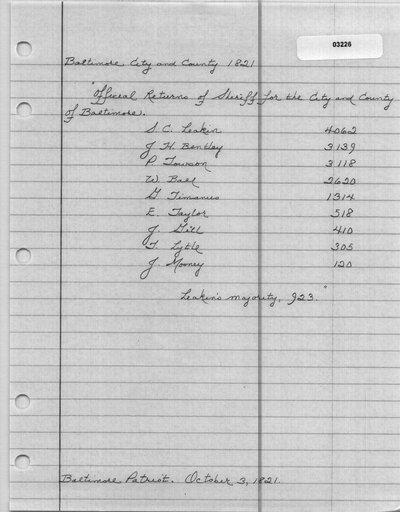 03226
Baltimore City and County 1821
"Official Returns of Sheriff for the City and County
of Baltimore.
S. C. Leakin 4062
J. H. Bentley 3139
P. Towson 3118
W. Ball 2620
G. Timanus 1314
E. Taylor 518
J. Gill 410
T. Lytle 305
J. Mooney 120
Leakin's majority, 923."
Baltimore Patriot. October 3, 1821.